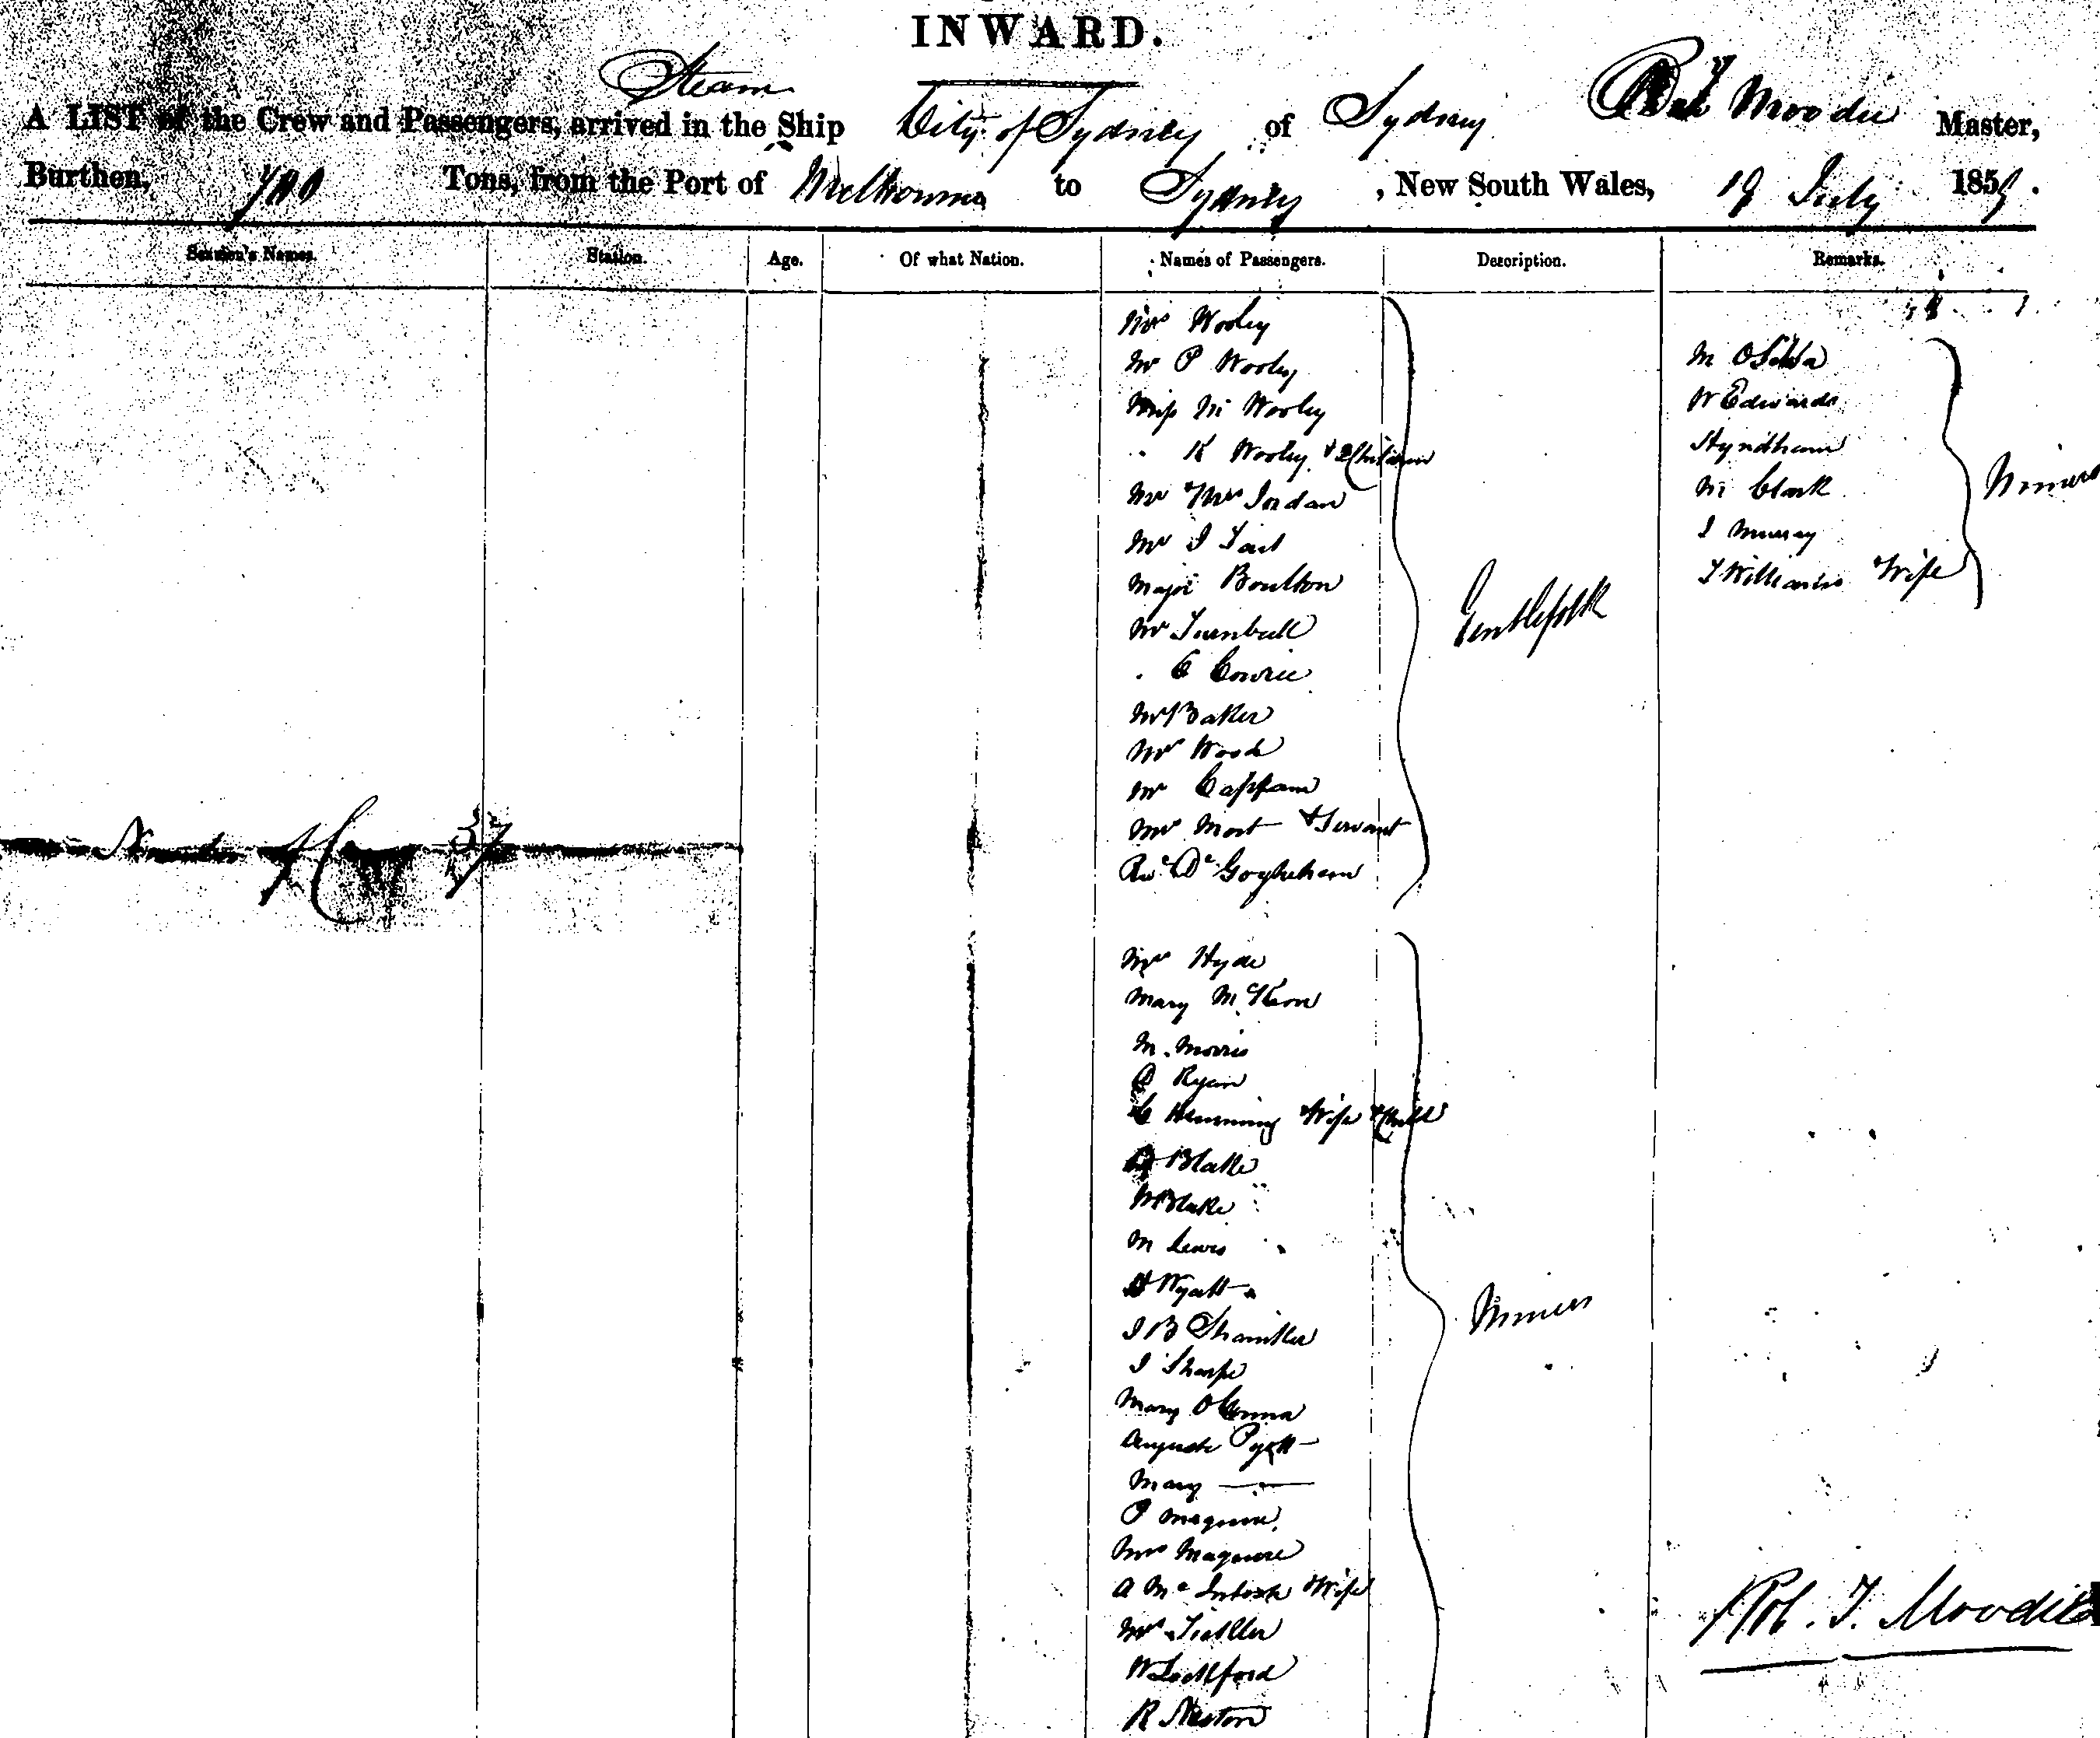 INWARD.
Steam
A LIST of the Crew and Passengers, arrived in the Ship City of Sydney of Sydney Moodie Master,
Burthen, 700 Tons, from the Port of Melbourne to Sydney, New South Wales, 19 July 1859.
Seamen's Names. Station. Age. Of what Nation. Names of Passengers. Description. Remarks.
Mrs Wooley
Mr P Wooley
Miss M Wooley
" K Wooley & 2 Children
Mr & Mrs Jordan
Mr J Tait
Major Boulton
Mr Turnbull
" C Cowrie
Mr Baker
Mr Wood
Mr
Mr Mort & Servant
Revd Dr
Gentlefolk
Number of Crew 37
Mr Hyde
Mary McKeon
M. Morris
Ryan
C Hemming Wife & Child
Blake
W Blake
M Lewis
H Wyatt
J B
J Sharpe
Mary OConna
Auguste
Mary —
P Maguire
Mrs Maguire
A McIntosh & Wife
Mr
W
R
Miners
M OShea
W Edwards
Wyndham
M Clark
J Murray
T Williams & Wife
Miners
Rob. T. Moodie